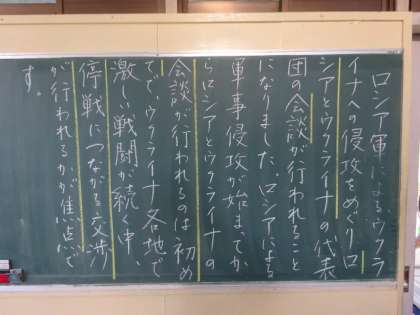 ロシア軍によるウクラ
イナへの侵攻をめぐりロ
シアとウクライナの代表
団の会談が行われること
になりました。ロシアによる
軍事侵攻が始まてか
らロシアとウクライナの
会談が行われるのは初め
てで、ウクライナ各地で
激しい戦闘が続く中、
停戦につながる交渉
が行われるかが焦点で
す。